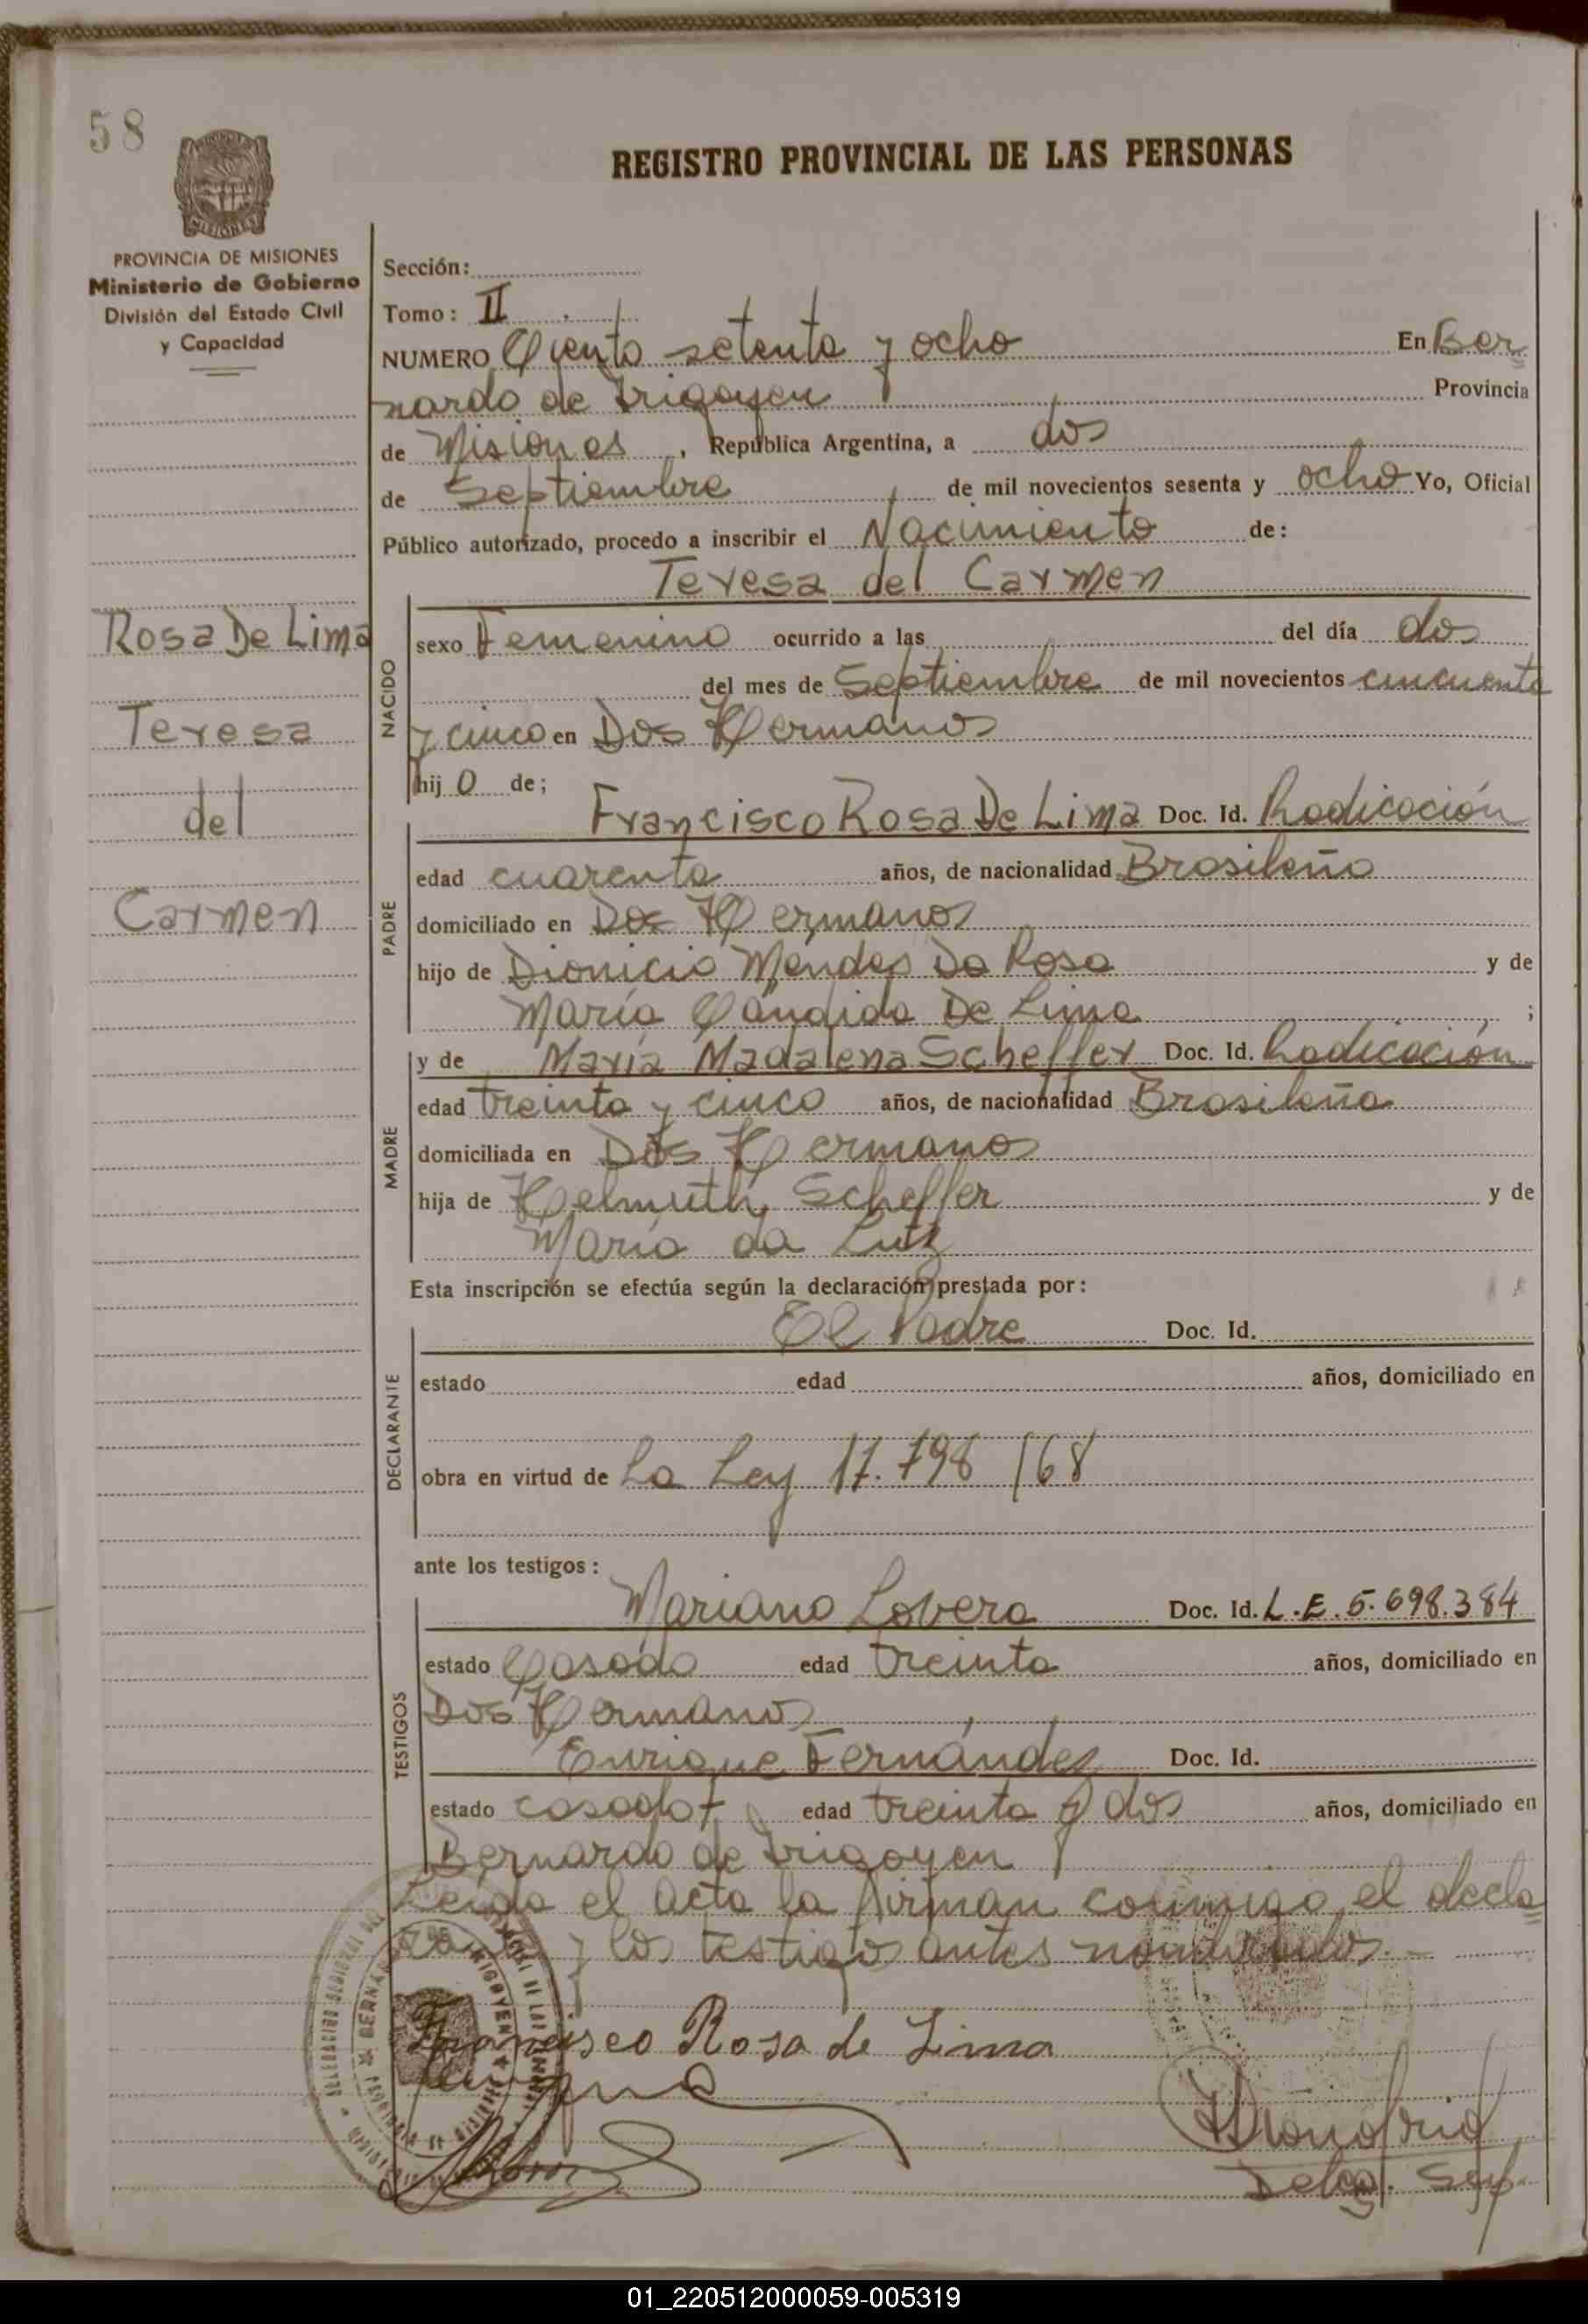 58
REGISTRO PROVINCIAL DE LAS PERSONAS
PROVINCIA DE MISIONES
Ministerio de Gobierno
División del Estado Civil
y Capacidad
Sección:
Tomo: II
NUMERO Ciento setenta y ocho En Ber
nardo de Irigoyen Provincia
de Misiones, República Argentina, a dos
de Septiembre de mil novecientos sesenta y ocho Yo, Oficial
Público autorizado, procedo a inscribir el Nacimiento de:
Teresa del Carmen
Rosa De Lima
Teresa
del
Carmen
NACIDO
sexo Femenino ocurrido a las del día dos
del mes de Septiembre de mil novecientos cincuenta
y cinco en Dos Hermanos
hij o de;
PADRE
Francisco Rosa De Lima Doc. Id. Radicación
edad cuarenta años, de nacionalidad Brasileño
domiciliado en Dos Hermanos
hijo de Dionicio Mendes Da Rosa y de
María Cándida De Lima ;
MADRE
y de María Madalena Scheffer Doc. Id. Radicación
edad treinta y cinco años, de nacionalidad Brasileña
domiciliada en Dos Hermanos
hija de Helmuth Scheffer y de
María da Lutz
Esta inscripción se efectúa según la declaración prestada por:
DECLARANTE
El Padre Doc. Id.
estado edad años, domiciliado en
obra en virtud de La Ley 17.798/68
ante los testigos:
TESTIGOS
Mariano Lovera Doc. Id. L.E. 5.698.384
estado Casado edad treinta años, domiciliado en
Dos Hermanos
Enrique Fernández Doc. Id.
estado casado edad treinta y dos años, domiciliado en
Bernardo de Irigoyen
Leída el acta la firman conmigo, el decla
rante y los testigos antes nombrados.-
Francisco Rosa de Lima
01_220512000059-005319